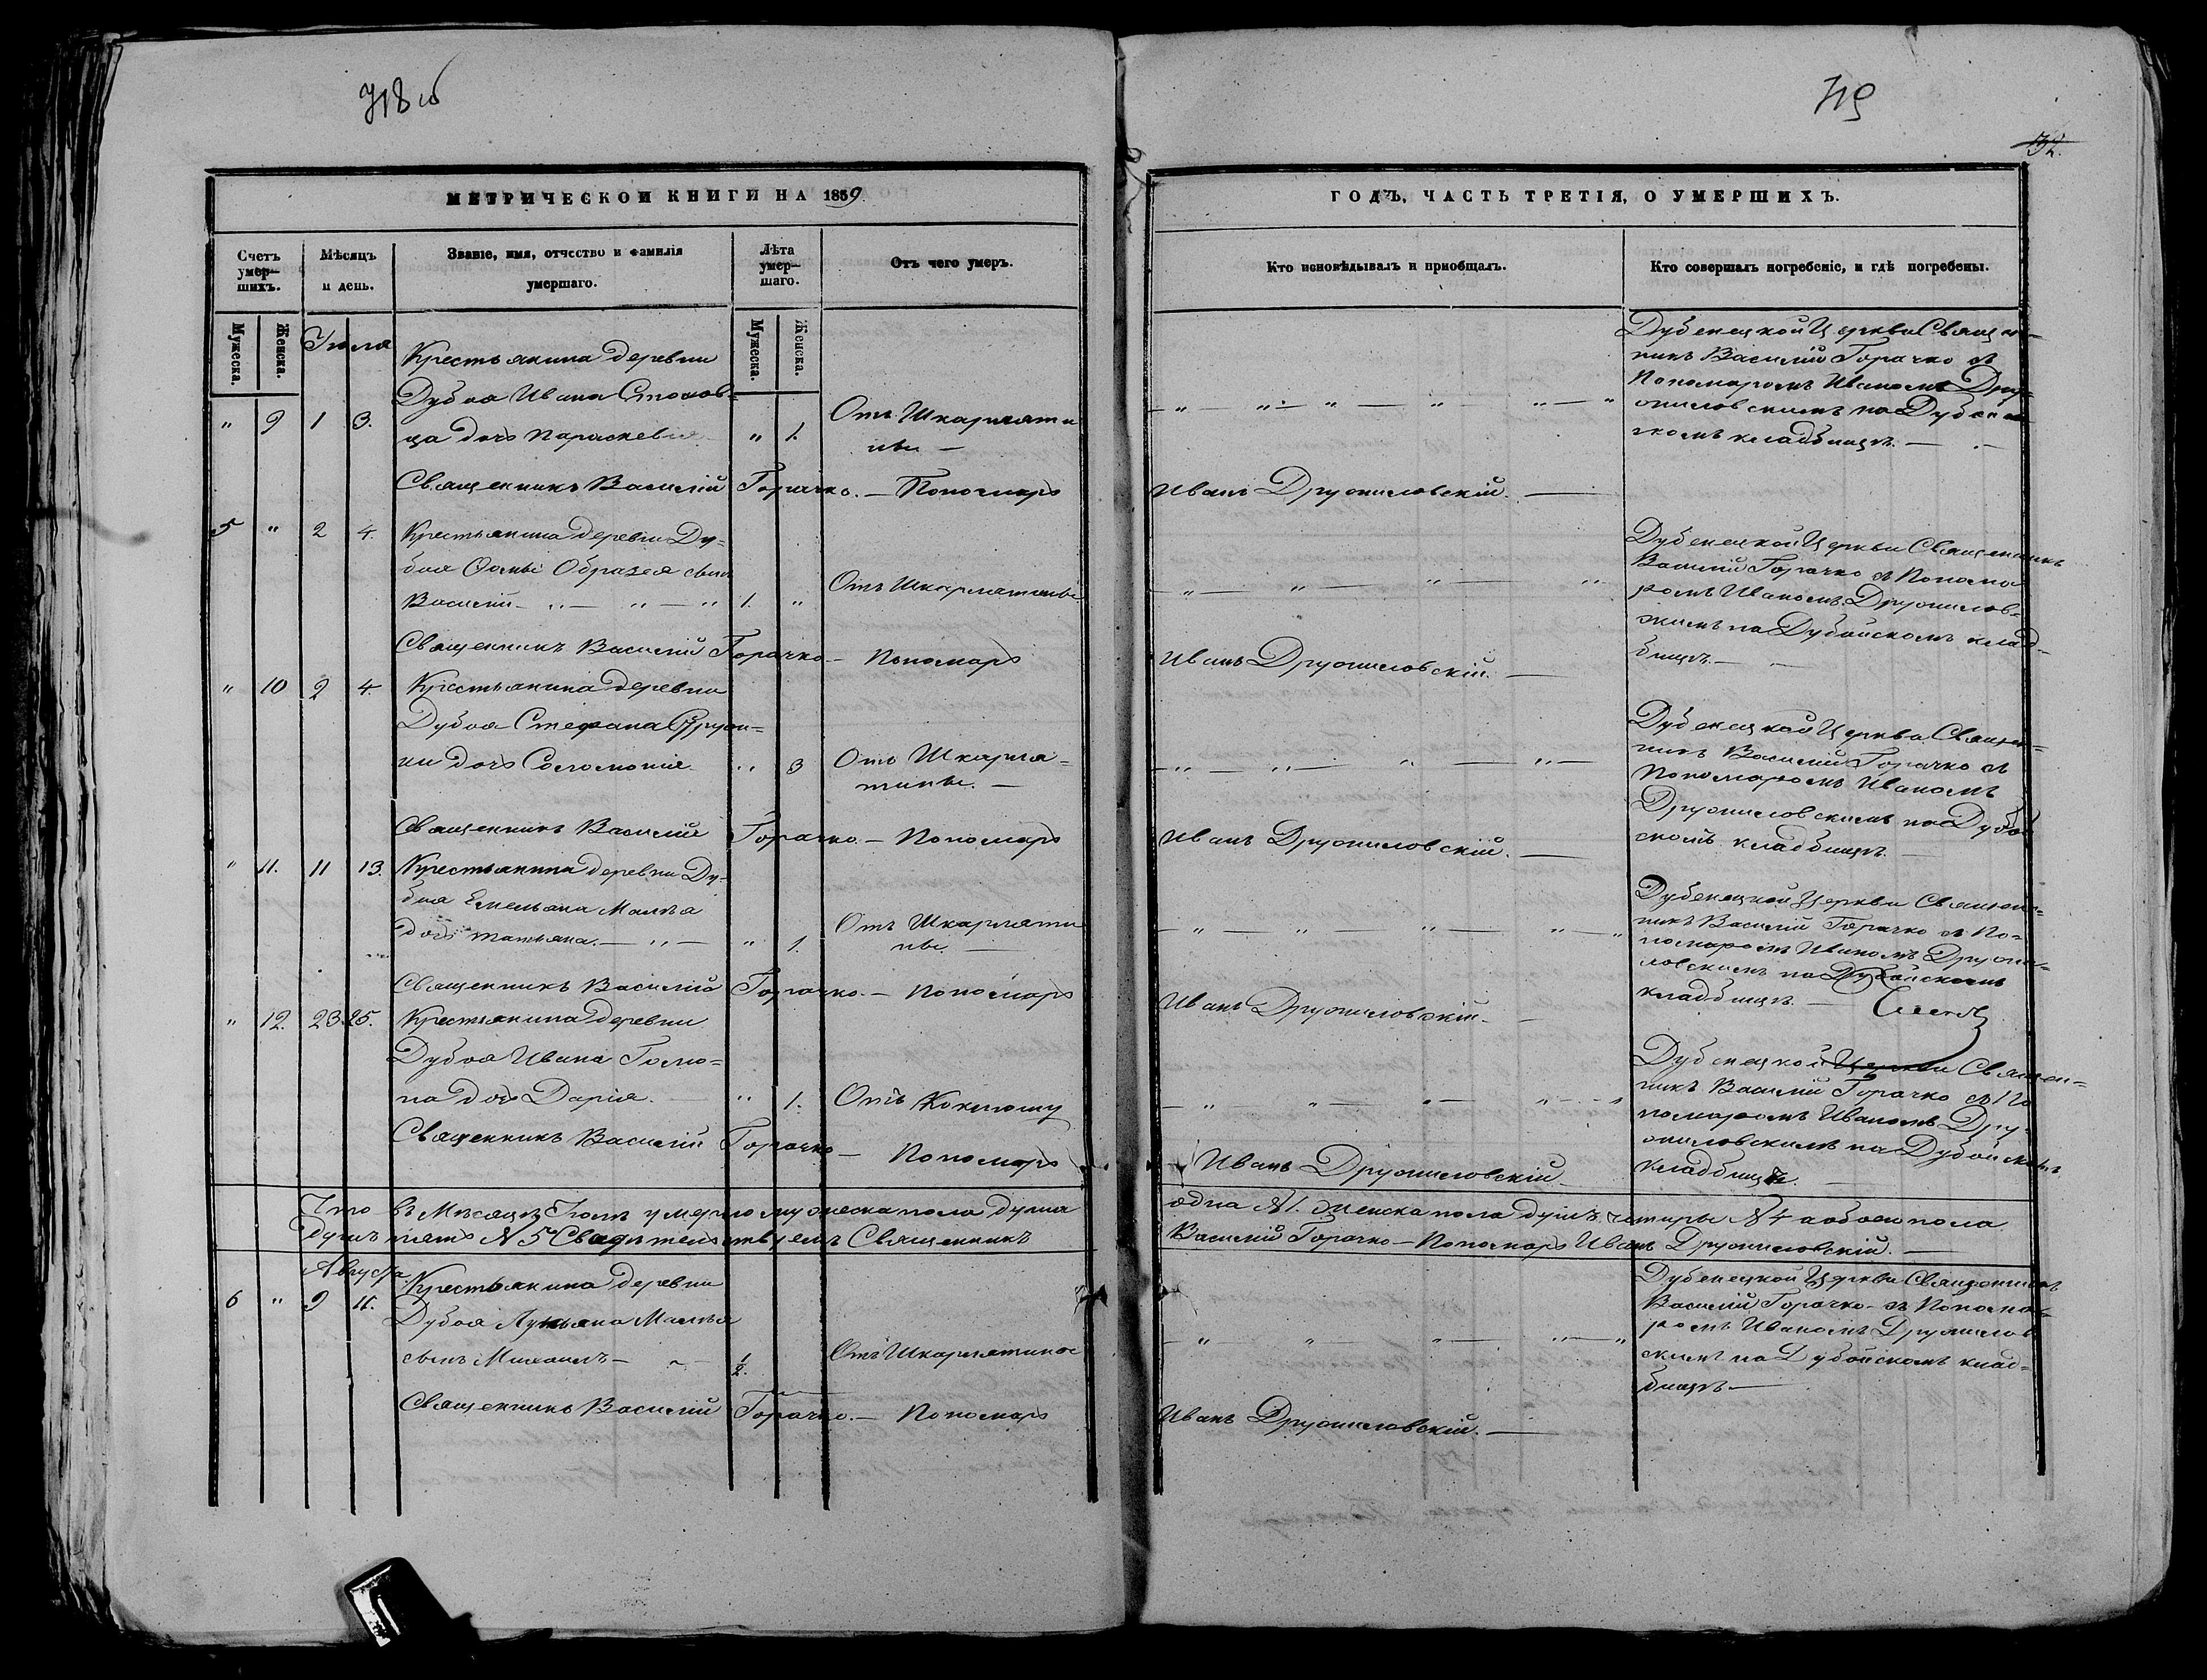 718 об
719
32.
МЕТРИЧЕСКОЙ КНИГИ НА 1859
ГОДЪ, ЧАСТЬ ТРЕТІЯ, О УМЕРШИХЪ.
Счетъ умер-шихъ.
Мѣсяцъ и день.
Званіе, имя, отчество и фамилія умершаго.
Лѣта умер-шаго.
Отъ чего умеръ.
Кто исповѣдывалъ и пріобщалъ.
Кто совершалъ погребеніе, и гдѣ погребены.
Мужеска.
Женска.
Мужеска.
Женска.
Іюля
" 9 1 3.
Крестьянина деревни
Дубоя Ивана
ца дочь Параскевія
" 1.
Отъ Шкарляти
ны —
Дубенецкой Церкви Священ-
никъ Василій Горачко съ
Пономаромъ Иваномъ Дру-
жиловскимъ на
скомъ кладбищѣ. —
Священникъ Василій Горачко. — Пономарь
Иванъ Дружиловскій. —
5 " 2 4.
Крестьянина деревни Ду-
боя Ѳомы Образея сынъ
Василій — " — " — "
1. "
Отъ Шкарлятины
Дубенецкой Церкви Священникъ
Василій Горачко съ Понома
ромъ Иваномъ Дружилов-
скимъ на Дубойскомъ клад-
бищѣ. —
Священникъ Василій Горачко — Пономарь
Иванъ Дружиловскій. —
" 10 2 4.
Крестьянина деревни
Дубоя Стефана
ни дочь Соломонія
" 3
Отъ Шкарля-
тины. —
Дубенецкой Церкви Священ-
никъ Василій Горачко съ
Пономаромъ Иваномъ
Дружиловскимъ на Дубой
скомъ кладбищѣ. —
Священникъ Василій Горачко. — Пономарь
Иванъ Дружиловскій. —
" 11. 11 13.
Крестьянина деревни Ду-
боя Емельяна
дочь Татьяна. — " —
" 1.
Отъ Шкарляти
ны. —
Дубенецкой Церкви Священ-
никъ Василій Горачко съ По-
номаромъ Иваномъ Дружи-
ловскимъ на Дубойскомъ
кладбищѣ. —
Священникъ Василій Горачко. — Пономарь
Иванъ Дружиловскій —
" 12. 23. 25.
Крестьянина деревни
Дубоя Ивана Гомо-
на дочь Дарія.
" 1.
Отъ Коклюшу
Дубенецкой Церкви Священ-
никъ Василій Горачко съ По
номаромъ Иваномъ Дру-
жиловскимъ на Дубойскомъ
кладбищѣ. —
Священникъ Василій Горачко — Пономарь
Иванъ Дружиловскій
Что въ Мѣсяцѣ Іюлѣ умерло мужеска пола душа одна №1. женска пола душъ четыры №4 а обоего пола
душъ пять №5 Свидѣтельствуемъ Священникъ Василій Горачко — Пономарь Иванъ Дружиловскій. —
Августа
6 " 9 11.
Крестьянина деревни
Дубоя Лукьяна
сынъ Михаилъ —
1/2.
Отъ Шкарлятины
Дубенецкой Церкви Священникъ
Василій Горачко — съ Понома-
ромъ Иваномъ Дружилов
скимъ на Дубойскомъ клад-
бищѣ. —
Священникъ Василій Горачко. — Пономарь
Иванъ Дружиловскій. —